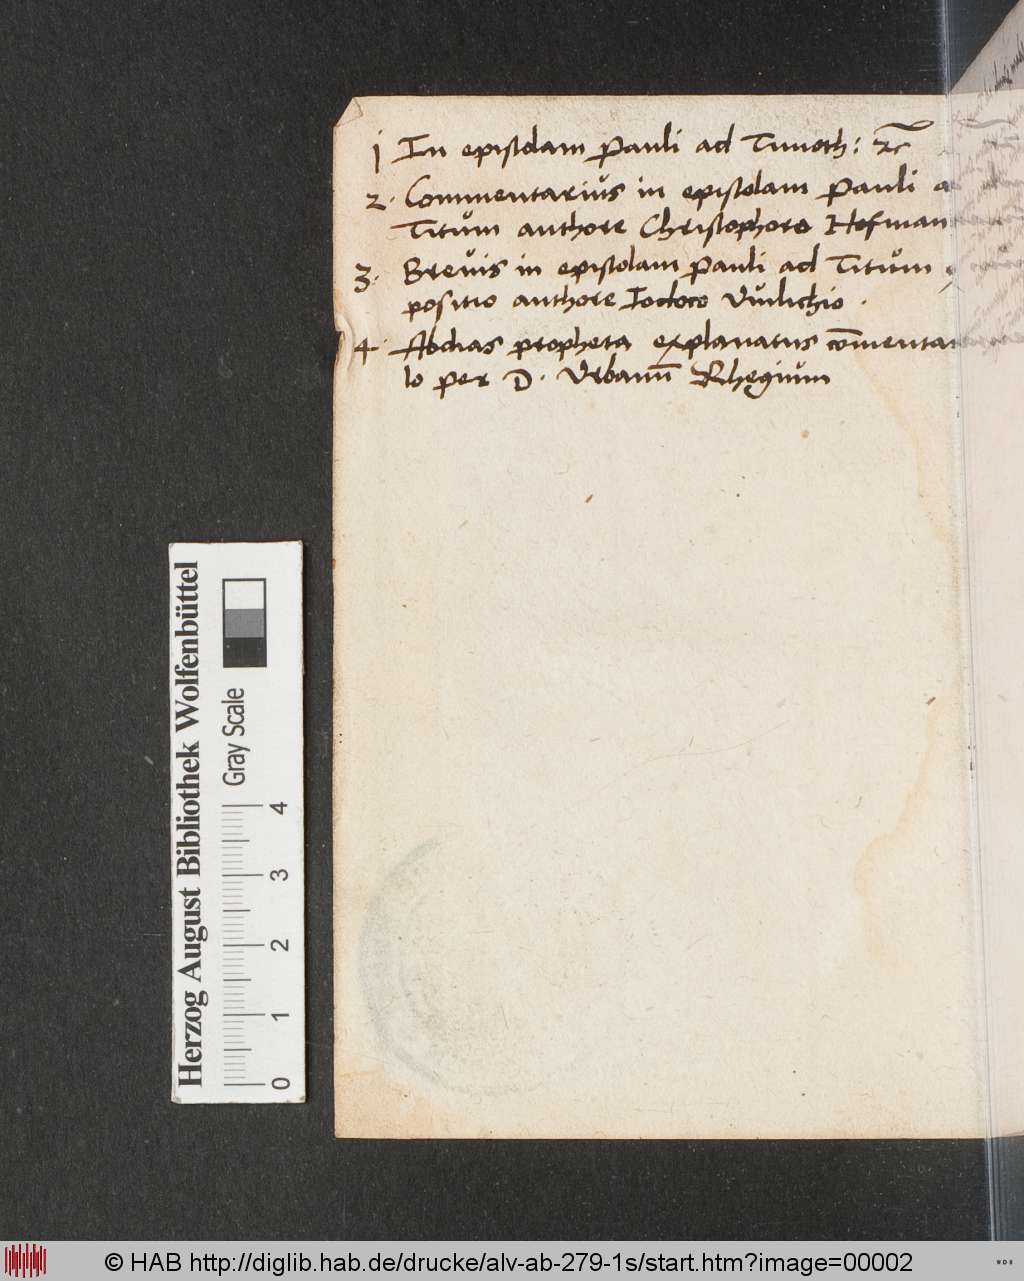 1 In epistolam Pauli ad Timoth: ꝛc
2. Commentarius in epistolam Pauli a
Titum authore Christophoro Hofman
3. Brevis in epistolam Pauli ad Titum
positio authore Iodoco Vuilichio.
4. Abdias propheta explanatus com̄entar
lo per D. Vrbanū Rhegium
Herzog August Bibliothek Wolfenbüttel
Gray Scale
0 1 2 3 4
© HAB http://diglib.hab.de/drucke/alv-ab-279-1s/start.htm?image=00002